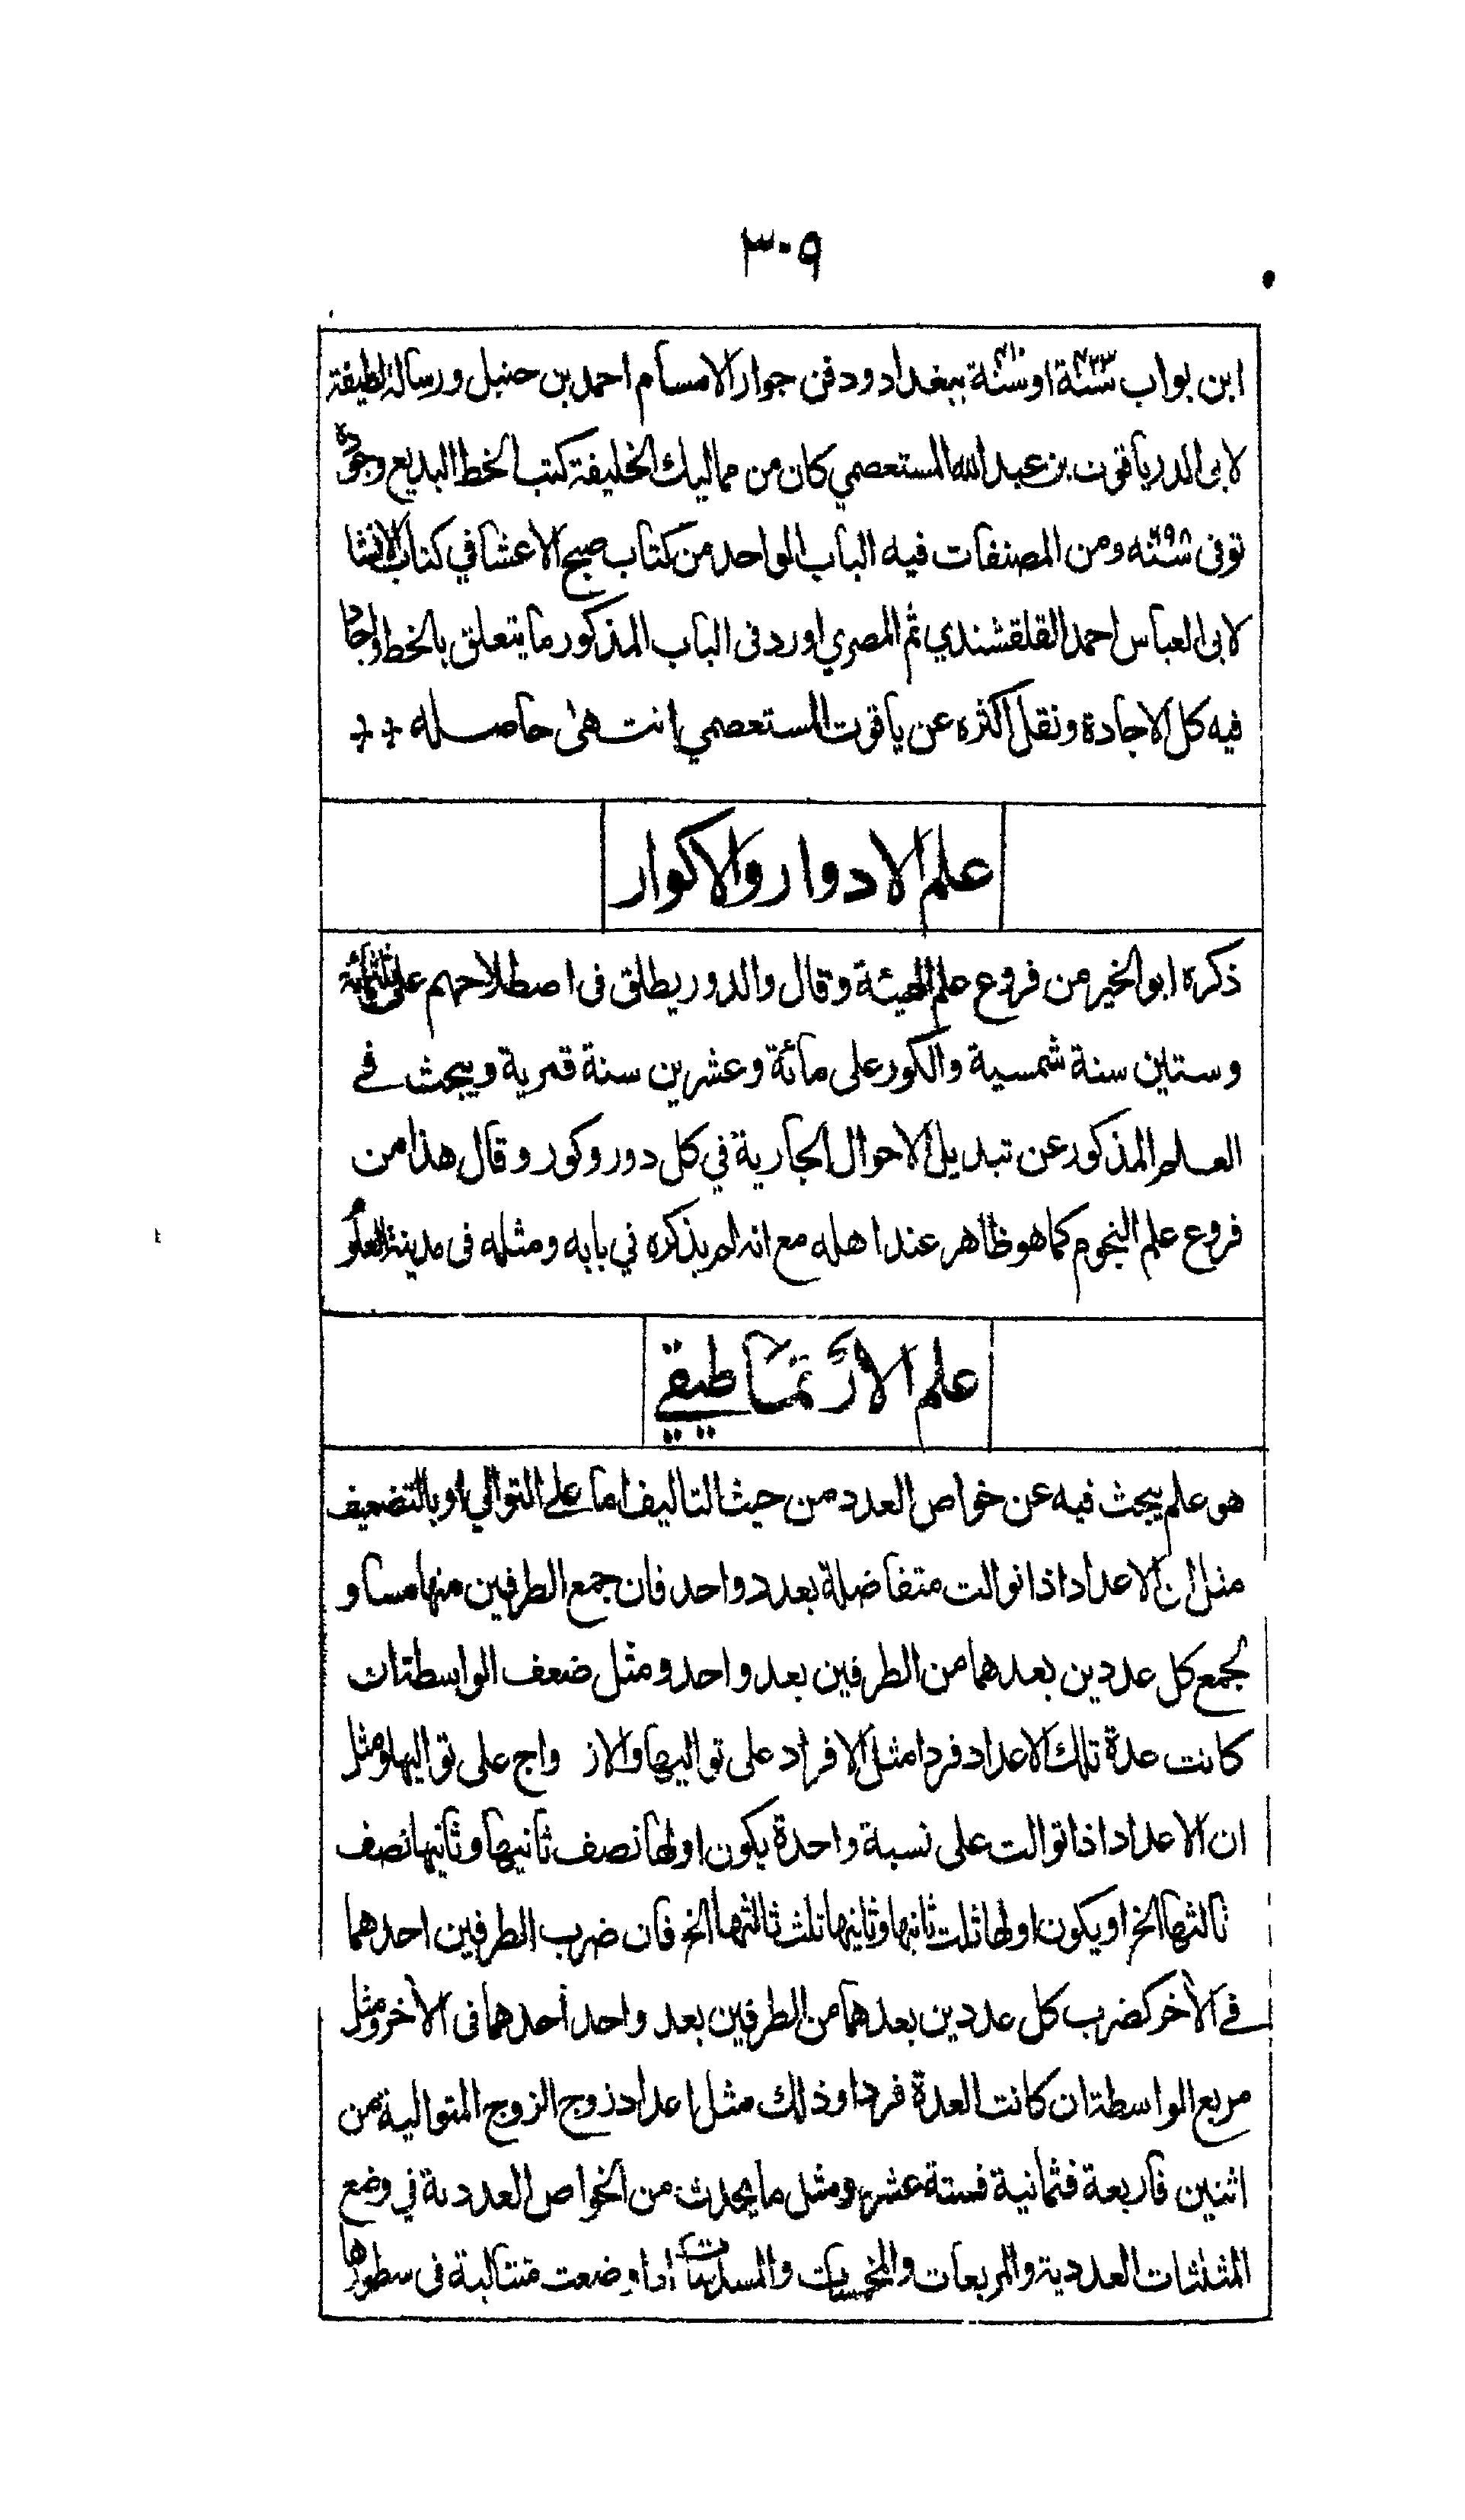 ٣٠٩
ابن بواب سنة ٤٢٣ او سنة ببغداد ودفن جوار الامام احمد بن حنبل ورسالة لطيفة
لابى الدر ياقوت بن عبد الله المستعصمي كان من مماليك الخليفة كتب الخط البديع وجوده
توفى سنه ٦٩٨ ومن المصنفات فيه الباب الواحد من كتاب صبح الاعشا في كتاب الانشا
لابى العباس احمد القلقشندي ثم المصري اورد فى الباب المذكور ما يتعلق بالخط واجاد
فيه كل الاجادة ونقل اكثره عن ياقوت المستعصمي انتهىٰ حاصله ++
علم الادوار والاكوار
ذكره ابو الخير من فروع علم الهيئة وقال والدور يطلق فى اصطلاحهم على ثلثمائة
وستين سنة شمسية والكور على مائة وعشرين سنة قمرية ويبحث في
العلم المذكور عن تبديل الاحوال الجارية في كل دور وكور وقال هذا من
فروع علم النجوم كما هو ظاهر عند اهله مع انه لم يذكره في بابه ومثله فى مدينة العلوم
علم الأرتماطيقي
هو علم يبحث فيه عن خواص العدد من حيث التاليف اما على التوالي او بالتضعيف
مثل ان الاعداد اذا توالت متفاضلة بعدد واحد فان جمع الطرفين منها مساو
لجمع كل عددين بعدهما من الطرفين بعد واحد ومثل ضعف الواسطة ان
كانت عدة تلك الاعداد فردا مثل الافراد على تواليها والازواج على تواليها ومثل
ان الاعداد اذا توالت على نسبة واحدة يكون اولها نصف ثانيها وثانيها نصف
ثالثها الخ او يكون اولها ثلث ثانيها وثانيها ثلث ثالثها الخ فان ضرب الطرفين احدهما
في الأخر كضرب كل عددين بعدهما من الطرفين بعد واحد أحدهما فى الأخر ومثل
مربع الواسطة ان كانت العدة فردا وذلك مثل اعداد زوج الزوج المتوالية من
اثنين فاربعة فثمانية فستة عشر ومثل ما يحدث من الخواص العددية في وضع
المثلثات العددية والمربعات والمخمسات والمسدسات اذا وضعت متتالية فى سطورها